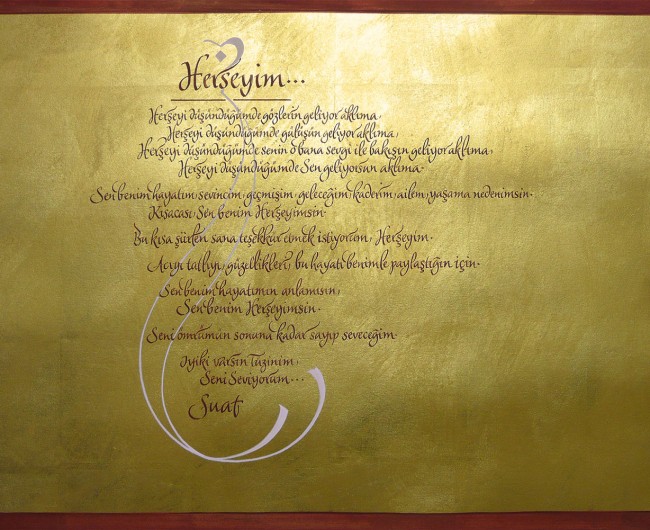 Herşeyim...
Herşeyi düşündüğümde gözlerin geliyor aklıma,
Herşeyi düşündüğümde gülüşün geliyor aklıma,
Herşeyi düşündüğümde senin o bana sevgi ile bakışın geliyor aklıma,
Herşeyi düşündüğümde Sen geliyorsun aklıma.
Sen benim hayatım, sevincim, geçmişim, geleceğim, kaderim, ailem, yaşama nedenimsin.
Kısacası, Sen benim Herşeyimsin.
Bu kısa şiirlen sana teşekkür etmek istiyorum, Herşeyim.
Acıyı tatlıyı, güzellikleri, bu hayatı benimle paylaştığın için.
Sen benim hayatımın anlamısın,
Sen benim Herşeyimsin.
Seni ömrümün sonuna kadar sayıp seveceğim.
İyiki varsın Tüzinim,
Seni Seviyorum...
Suat